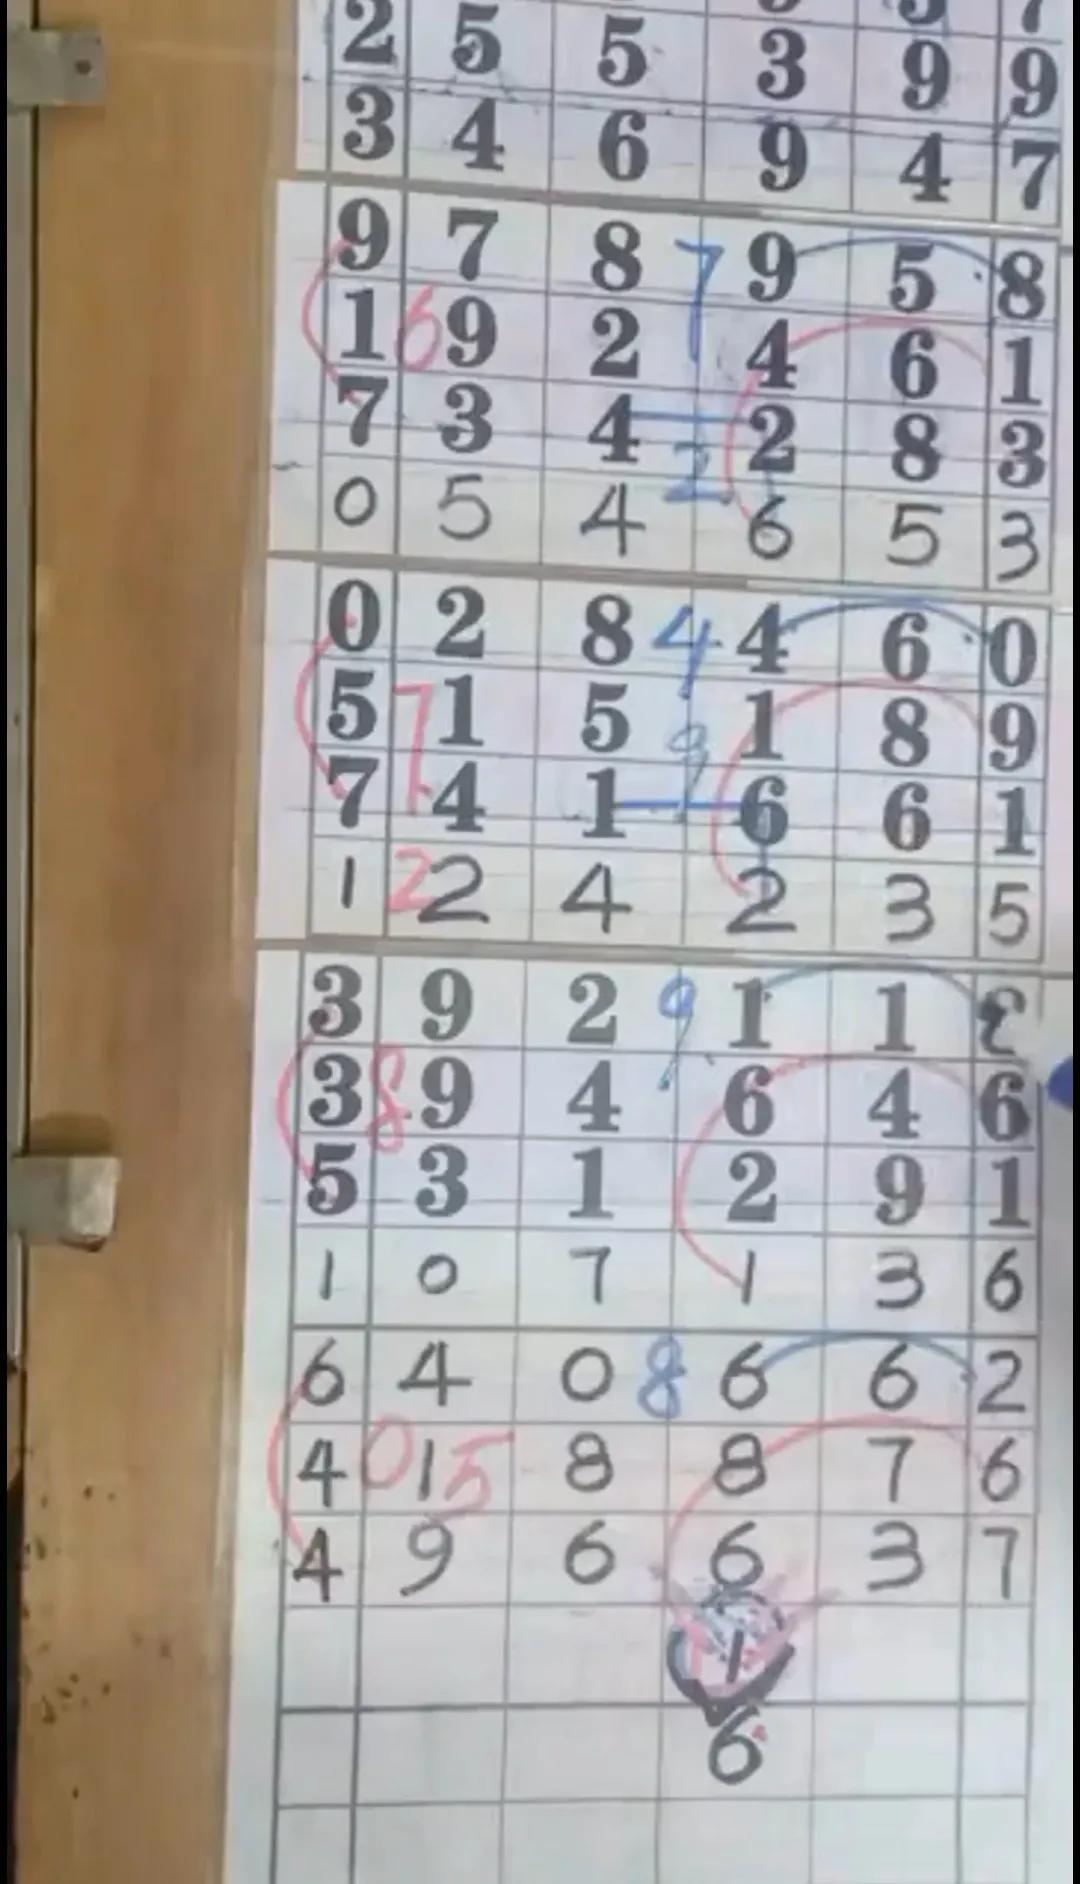 2 5 5 3 9 9
3 4 6 9 4 7
9 7 8 7 9 5 8
1 6 9 2 4 6 1
7 3 4 2 2 8 3
0 5 4 6 5 3
0 2 8 4 4 6 0
5 7 1 5 9 1 8 9
7 4 1 6 6 1
1 2 2 4 2 3 5
3 9 2 9 1 1 3
3 8 9 4 6 4 6
5 3 1 2 9 1
1 0 7 1 3 6
6 4 0 8 6 6 2
4 0 1 5 8 8 7 6
4 9 6 6 3 7
1
6